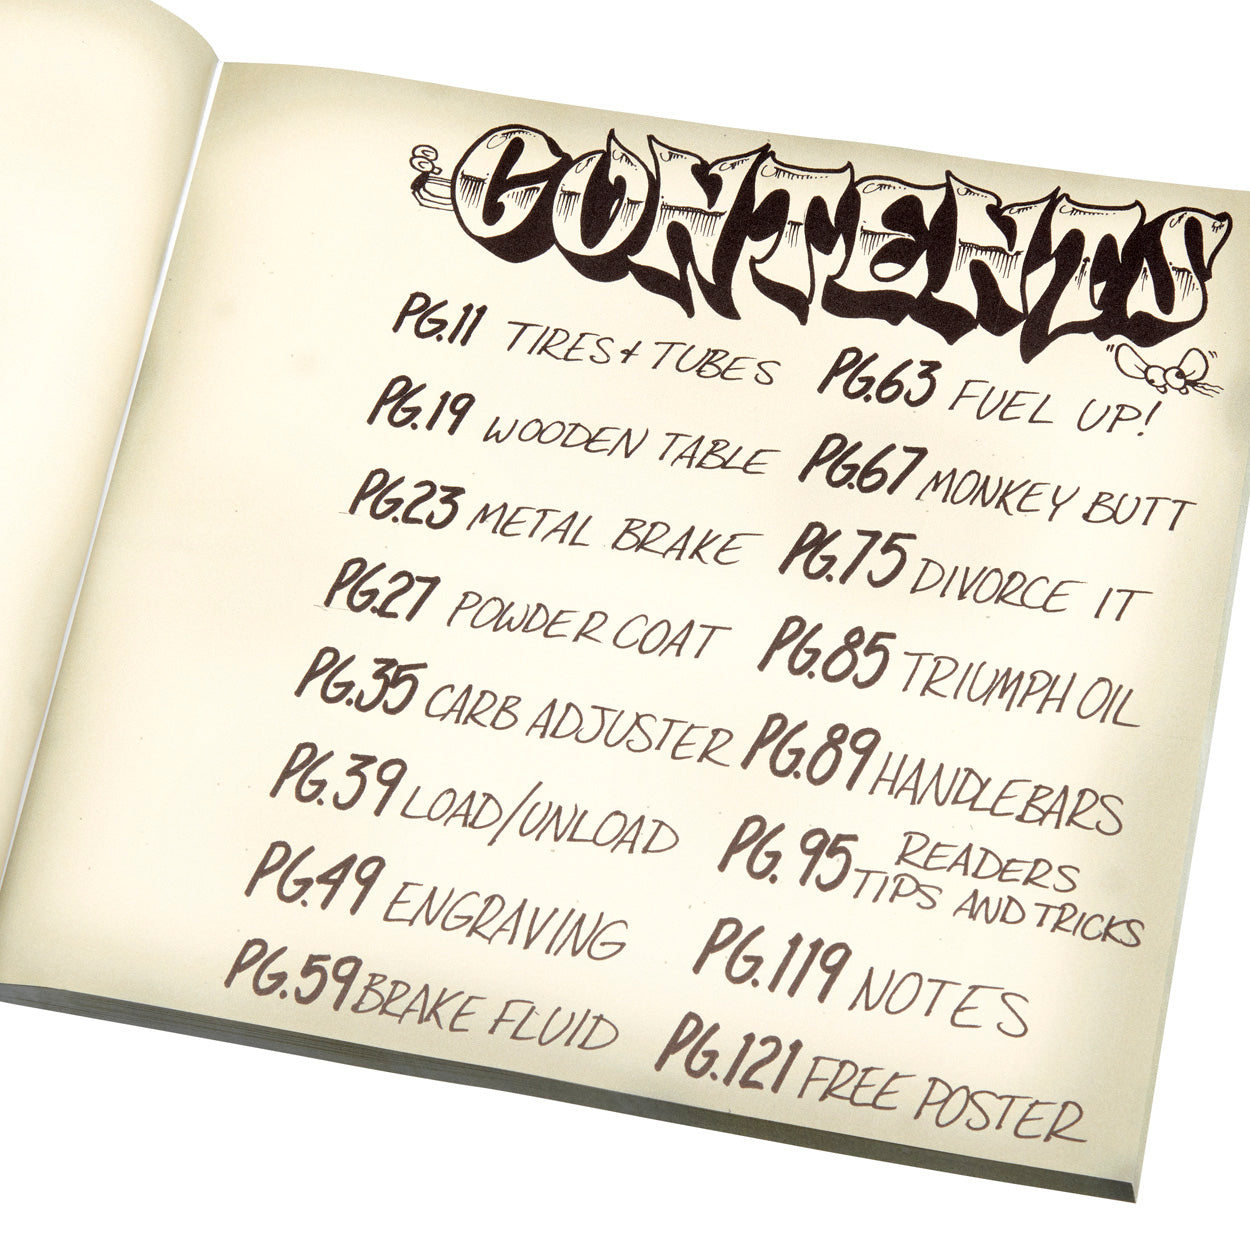 CONTENTS
PG.11 TIRES & TUBES
PG.19 WOODEN TABLE
PG.23 METAL BRAKE
PG.27 POWDER COAT
PG.35 CARB ADJUSTER
PG.39 LOAD/UNLOAD
PG.49 ENGRAVING
PG.59 BRAKE FLUID
PG.63 FUEL UP!
PG.67 MONKEY BUTT
PG.75 DIVORCE IT
PG.85 TRIUMPH OIL
PG.89 HANDLEBARS
PG.95 READERS
TIPS AND TRICKS
PG.119 NOTES
PG.121 FREE POSTER